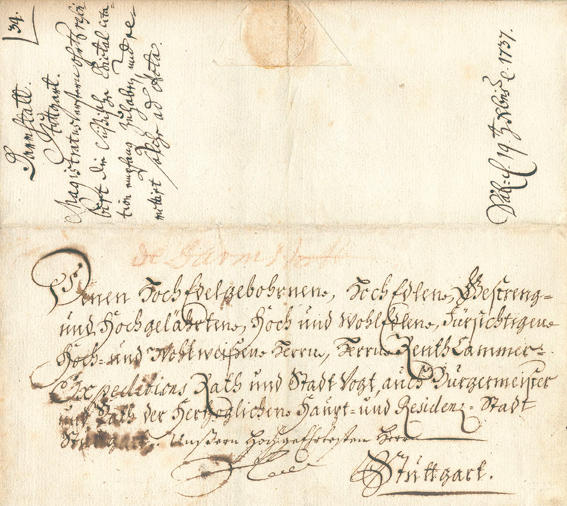 34.
Darmstatt.
Stuttgart.
Magistratus
bert die Edictal cita-
tion empfang zu haben, und re-
mittirt solche ad Acta.
Præs: d 19 Xbris 1737.
de Darm
Denen HochEdelgebohrnen, HochEdlen, Gestreng-
und Hochgelährten, Hoch und WohlEdlen, Fürsichtigen
Hoch- und Wohlweißen Herrn, Herrn RenthCammer-
Expeditions Rath und Stadt Vogt, auch Burgermeister
und Rath der Herzoglichen Haupt- und Residenz-Stadt
Stuttgart. Unßern Hochgeehrtesten Herrn
Stuttgart.